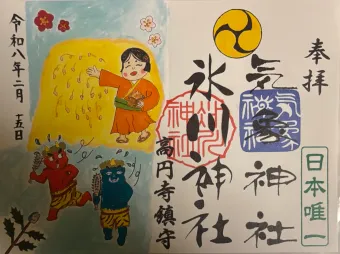 奉拝
日本唯一
気象神社
氷川神社
高円寺鎮守
令和八年二月 五日